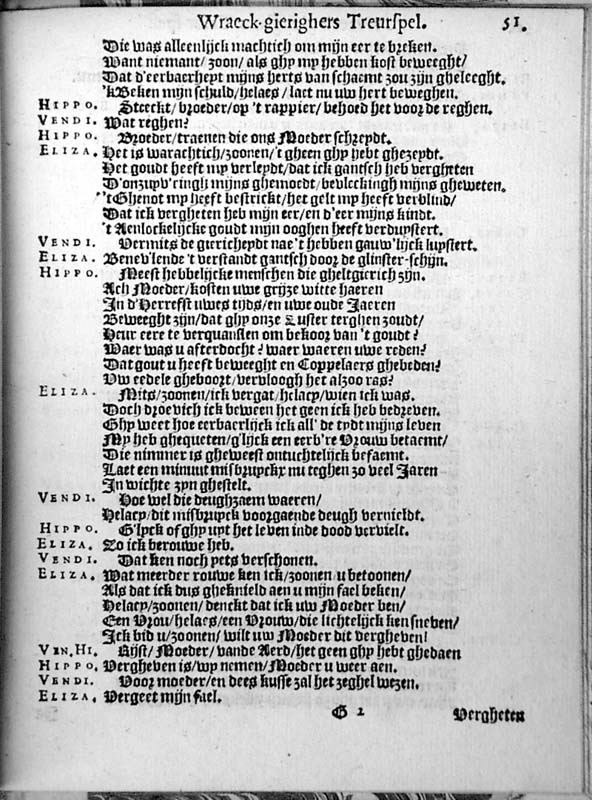 Wraeck-gierighers Treurspel. 51.
Die was alleenlijck machtich om mijn eer te breken.
Want niemant/ zoon/ als ghy my hebben kost beweeght/
Dat d'eerbaerheyt mijns herts van schaemt zou zijn gheleeght.
'k Beken mijn schuld/ helaes/ laet nu uw hert beweghen.
HIPPO. Steeckt/ broeder/ op 't rappier/ behoed het voor de reghen.
VENDI. Wat reghen?
HIPPO. Broeder/ traenen die ons Moeder schreydt.
ELIZA. Het is warachtich/ zoonen/ 't gheen ghy hebt ghezeydt.
Het goudt heeft my verleydt/ dat ick gantsch heb vergheten
D'onzuyv'ringh mijns ghemoedt/ bevleckingh mijns gheweten.
't Ghenot my heeft bestrickt/ het gelt my heeft verblind/
Dat ick vergheten heb mijn eer/ en d'eer mijns kindt.
't Aenlockelijcke goudt mijn ooghen heeft verduystert.
VENDI. Vermits de giericheydt nae't hebben gauw'lijck luystert.
ELIZA. Benev'lende 't verstandt gantsch door de glinster-schijn.
HIPPO. Meest hebbelijcke menschen die ghelegierich zijn.
Ach Moeder/ kosten uwe grijze witte haeren
In d'Herrefst uwes tijds/ en uwe oude Jaeren
Beweeght zijn/ dat ghy onze Suster terghen zoudt/
Heur eere te verquanslen om bekoor van 't goudt?
Waer was u afterdocht? waer waeren uwe reden?
Dat gout u heeft beweeght en Coppelaers ghebeden?
Uw eedele gheboort/ vervloogh het alzoo ras?
ELIZA. Mits/ zoonen/ ick vergat/ helacy/ wien ick was.
Doch droevich ick beween het geen ick heb bedreven.
Ghy weet hoe eerbaerlijck ick all' de tydt mijns leven
My heb ghequeten/ g'lijck een eerb're Vrouw betaemt/
Die nimmer is gheweest ontuchtelijck befaemt.
Laet een minuut misbruyckx nu teghen zo veel Jaren
In wichte zyn ghestelt.
VENDI. Hoe wel die deughzaem waeren/
Helacy/ dit misbruyck voorgaende deugh vernieldt.
HIPPO. G'lyck of ghy uyt het leven inde dood vervielt.
ELIZA. Zo ick berouwe heb.
VENDI. Dat ken noch yets verschonen.
ELIZA. Wat meerder rouwe ken ick/ zoonen/ u betoonen/
Als dat ick dus gheknield aen u mijn fael beken/
Helacy/ zoonen/ denckt dat ick uw Moeder ben/
Een Vrou/ helaes/ een Vrouw/ die lichtelijck ken sneven/
Ick bid u/ zoonen/ wilt uw Moeder dit vergheven!
VEN. HI. Rijst/ Moeder/ vande Aerd/ het geen ghy hebt ghedaen
HIPPO. Vergheven is/ wy nemen/ Moeder u weer aen.
VENDI. Voor moeder/ en dees kusse zal het zeghel wezen.
ELIZA. Vergeet mijn fael.
G 2 Vergheten